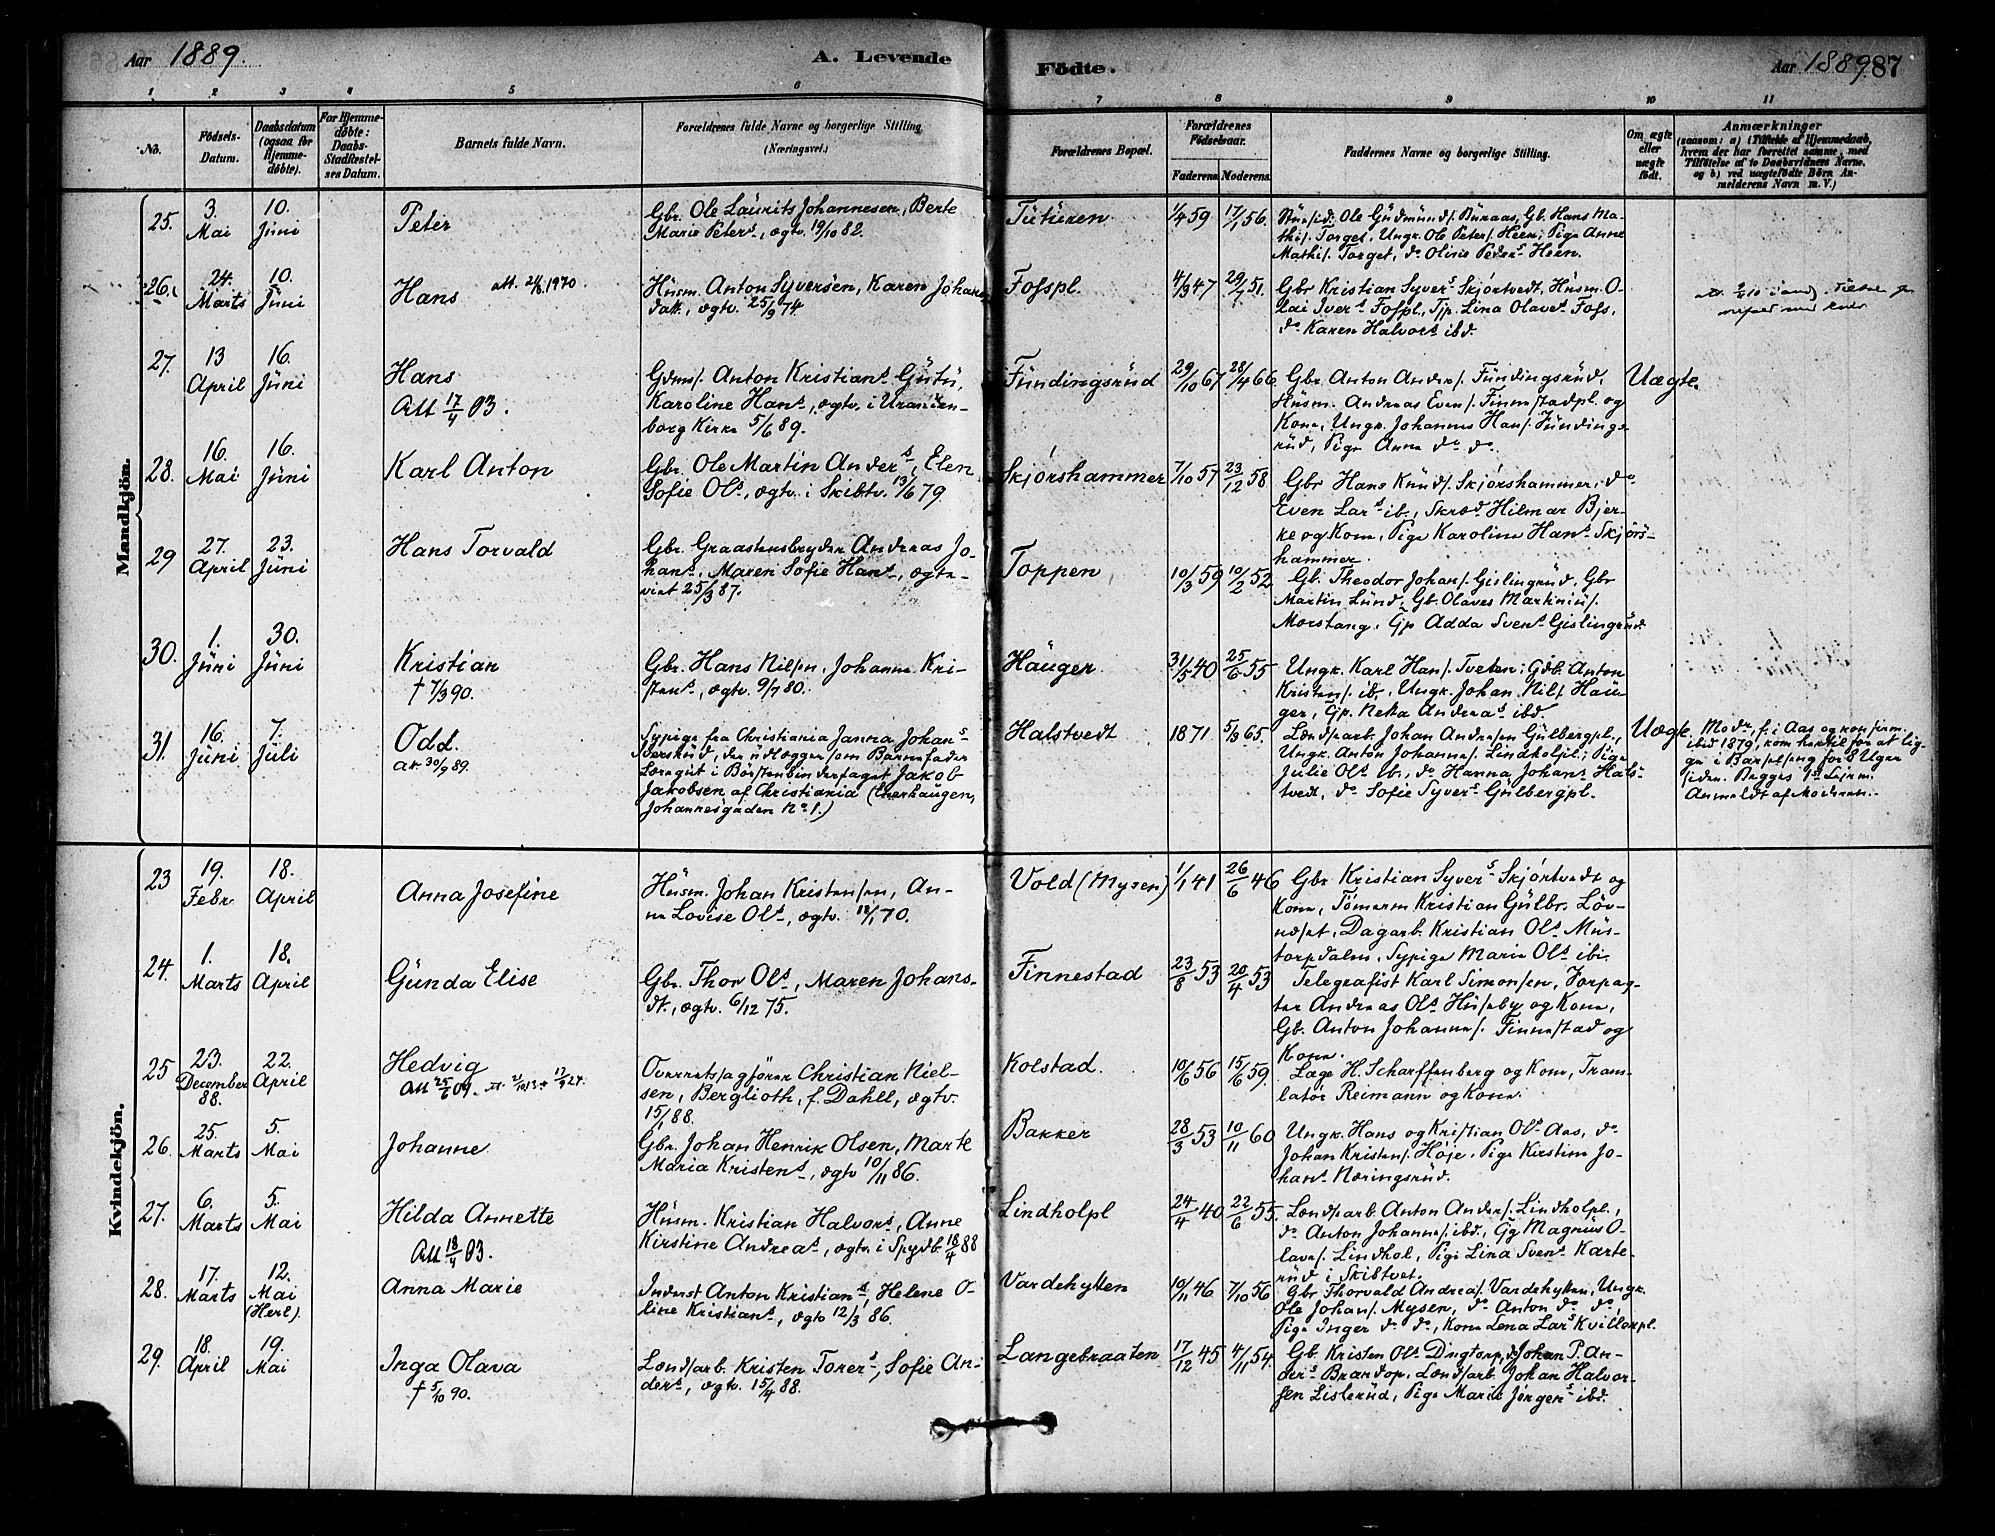 Aar 1889.
A. Levende
Födte.
Aar 1889. 87
1 2 3 4 5 6 7 8 9 10 11
No.
Födsels-
Datum.
Daabsdatum
(ogsaa for
Hjemme-
døbte).
For Hjemme-
døbte:
Daabs-
Stadfæstel-
ses Datum.
Barnets fulde Navn.
Forældrenes fulde Navne og borgerlige Stilling
(Næringsvei.)
Forældrenes Bopæl.
Forældrenes
Födselsaar.
Faderens. Moderens.
Faddernes Navne og borgerlige Stilling.
Om ægte
eller
uægte
født.
Anmærkninger
(saasom: a) i Tilfælde af Hjemmedaab,
hvem der har forrettet samme, med
Tilföielse af to Daabsvidners Navne.
og b) ved uægtefödte Börn An-
melderens Navn m. V.)
Mandkjön.
25. 3. Mai
10. Juni
Peter
Gbr. Ole Laurits Johannesen, Berte
Marie Peters., ægtv. 19/10 82.
1/4 59 17/1 56.
Ole Gudmunds. Buraas, Gb. Hans Ma-
this. Torget, Ungk. Ole Peters. Heen; Pige Anne
Mathis. Torget, do Oline Peders Heen.
26. 24. Marts
10. Juni
Hans
Husm. Anton Syversen, Karen Johans
datt., ægtv. 25/9 74
Fosspl.
4/3 47 29/7 51.
Gbr Kristian Syvers Skjörtvedt, Husm. O-
lai Ivers Fosspl., Tjp. Lina Olaves Foss,
do Karen Halvors ibd.
27. 13 April
16. Juni
Hans
Att 17/4 03.
Gdms. Anton Kristians Gutu,
Karoline Hans., ægtv. i Uranien-
borg Kirke 5/6 89.
Fundingsrud
29/10 67 28/4 66
Gbr Anton Anders. Fundingsrud,
Husm. Andreas Evens. Finnestadpl. og
Kone, Ungk. Johannes Hans. Fundings-
rud, Pige Anna do do.
Uægte.
28. 16. Mai
16. Juni
Karl Anton
Gbr. Ole Martin Anders, Elen
Sofie Ols, ægtv. i Skibtv. 13/6 79.
Skjörshammer
7/10 57 23/12 58
Gbr Hans Knuds. Skjörshammer, do
Even Lars ib., Skræd. Hilmar Bjer-
ke og Kone, Pige Karoline Hans Skjörs-
hammer.
29 27. April
23. Juni
Hans Torvald
Gbr. Graastensbryder Andreas Jo-
hans., Maren Sofie Hans, ægte-
viet 25/3 87.
Toppen
10/3 59 10/2 52
Gb. Theodor Johans. Gislingrud, Gbr
Martin Lund, Gb. Olaves Martinius.
Morstang, Gp Adda Svens Gislingrud.
30. 1. Juni
30. Juni
Kristian
† 7/3 90.
Gbr. Hans Nilsen, Johanne Kri-
stens, ægtv. 9/7 80.
Hauger
31/5 40 25/6 55
Ungk. Karl Hans. Tveten; Gdb. Anton
Kristens. ib., Ungk. Johan Nils. Hau-
ger, Gp. Netta Andreas ibd.
31. 16. Juni
7. Juli
Odd.
at. 30/9 89.
Sypige fra Christiania Janna Johans
Iversrud, der udlægger som Barnefader
Læregut i Börstenbinderfaget Jakob
Jakobsen af Christiania (Enerhaugen,
Johannesgaden No 1.)
Halstvedt
1871 5/3 65.
Lændsarb. Johan Andresen Gulbergpl.,
Ungk. Anton Johannes. Lindholpl.; Pige
Julie Ols ib., do Hanna Johans Hals-
tvedt, do Sofie Syvers Gulbergpl.
Uægte
Modr. f. i Aas og konfirm.
ibid 1879, kom hertil for at lig-
ge i Barselseng for 8 Uger
siden. Begges 1ste Leierm.
Anmeldt af Moderen.
Kvindekjön.
23 19. Febr.
18. April
Anna Josefine
Husm. Johan Kristensen, An-
ne Lovise Ols, ægtv. 12/1 70.
Vold (Mysen)
1/1 41 26/6 46
Gbr Kristian Syvers Skjörtvedt og
Kone, Tömerm Kristian Gulbr. Löv-
næset, Dagarb. Kristian Ols Mus-
torpdalen, Sypige Marie Ols ibi.
24. 1. Marts
18. April
Gunda Elise
Gbr. Thor Ols, Maren Johans-
dt., ægtv. 6/12 75.
Finnestad
23/8 53 20/4 53
Telegrafist Karl Simonsen, Forpag-
ter Andreas Ols Huseby og Kone,
Gb. Anton Johannes. Finnestad og
Kone.
25 23. December 88.
22. April
Hedvig
Att 25/6 09.
Overretssagförer Christian Niel-
sen, Berglioth, f. Dahll, ægtv.
15/1 88.
Kolstad.
10/6 56 15/6 59.
Læge H. Scharffenberg og Kone, Trans-
latör Reimann og Kone.
26. 25. Marts
5. Mai
Johanne
Gbr. Johan Henrik Olsen, Marte
Maria Kristens, ægtv 10/11 86.
Bakker
28/3 53 10/11 60
Ungk. Hans og Kristian Ols Aas, do
Johan Kristens. Höje, Pige Kirstine Jo-
hans. Næringsrud.
27. 6. Marts
5. Mai
Hilda Annette
Att 18/4 03.
Husm. Kristian Halvors, Anne
Kirstine Andreas, ægtv i Spydb. 18/4 88
Lindholpl
24/4 40 22/6 55.
Lændsarb Anton Anders. Lindholpl.,
do Anton Johannes. ibd., Gg Magnus O-
laves. Lindhol, Pige Lina Svens Karte-
rud i Skibtvet.
28. 17. Marts
12. Mai (Herl).
Anna Marie
Inderst Anton Kristians, Helene O-
line Kristians, ægtv 12/3 86.
Vardehytten
10/11 46 7/10 56
Gbr Thorvald Andreas. Vardehytten, Ungk.
Ole Johans. Mysen, do Anton do do,
Pige Inger do do, Kone Lena Lars Kvillerpl.
29. 18. April
19. Mai
Inga Olava
† 5/10 90.
Lændsarb. Kristen Torers, Sofie An-
ders, ægtv. 15/4 88.
Langebraaten
17/12 45 4/11 54.
Gb. Kristen Ols Dugtorp, do Johan P. An-
ders Brandop, Lændsarb. Johan Halvor-
sen Lislerud, Pige Marie Jörgens ibd.